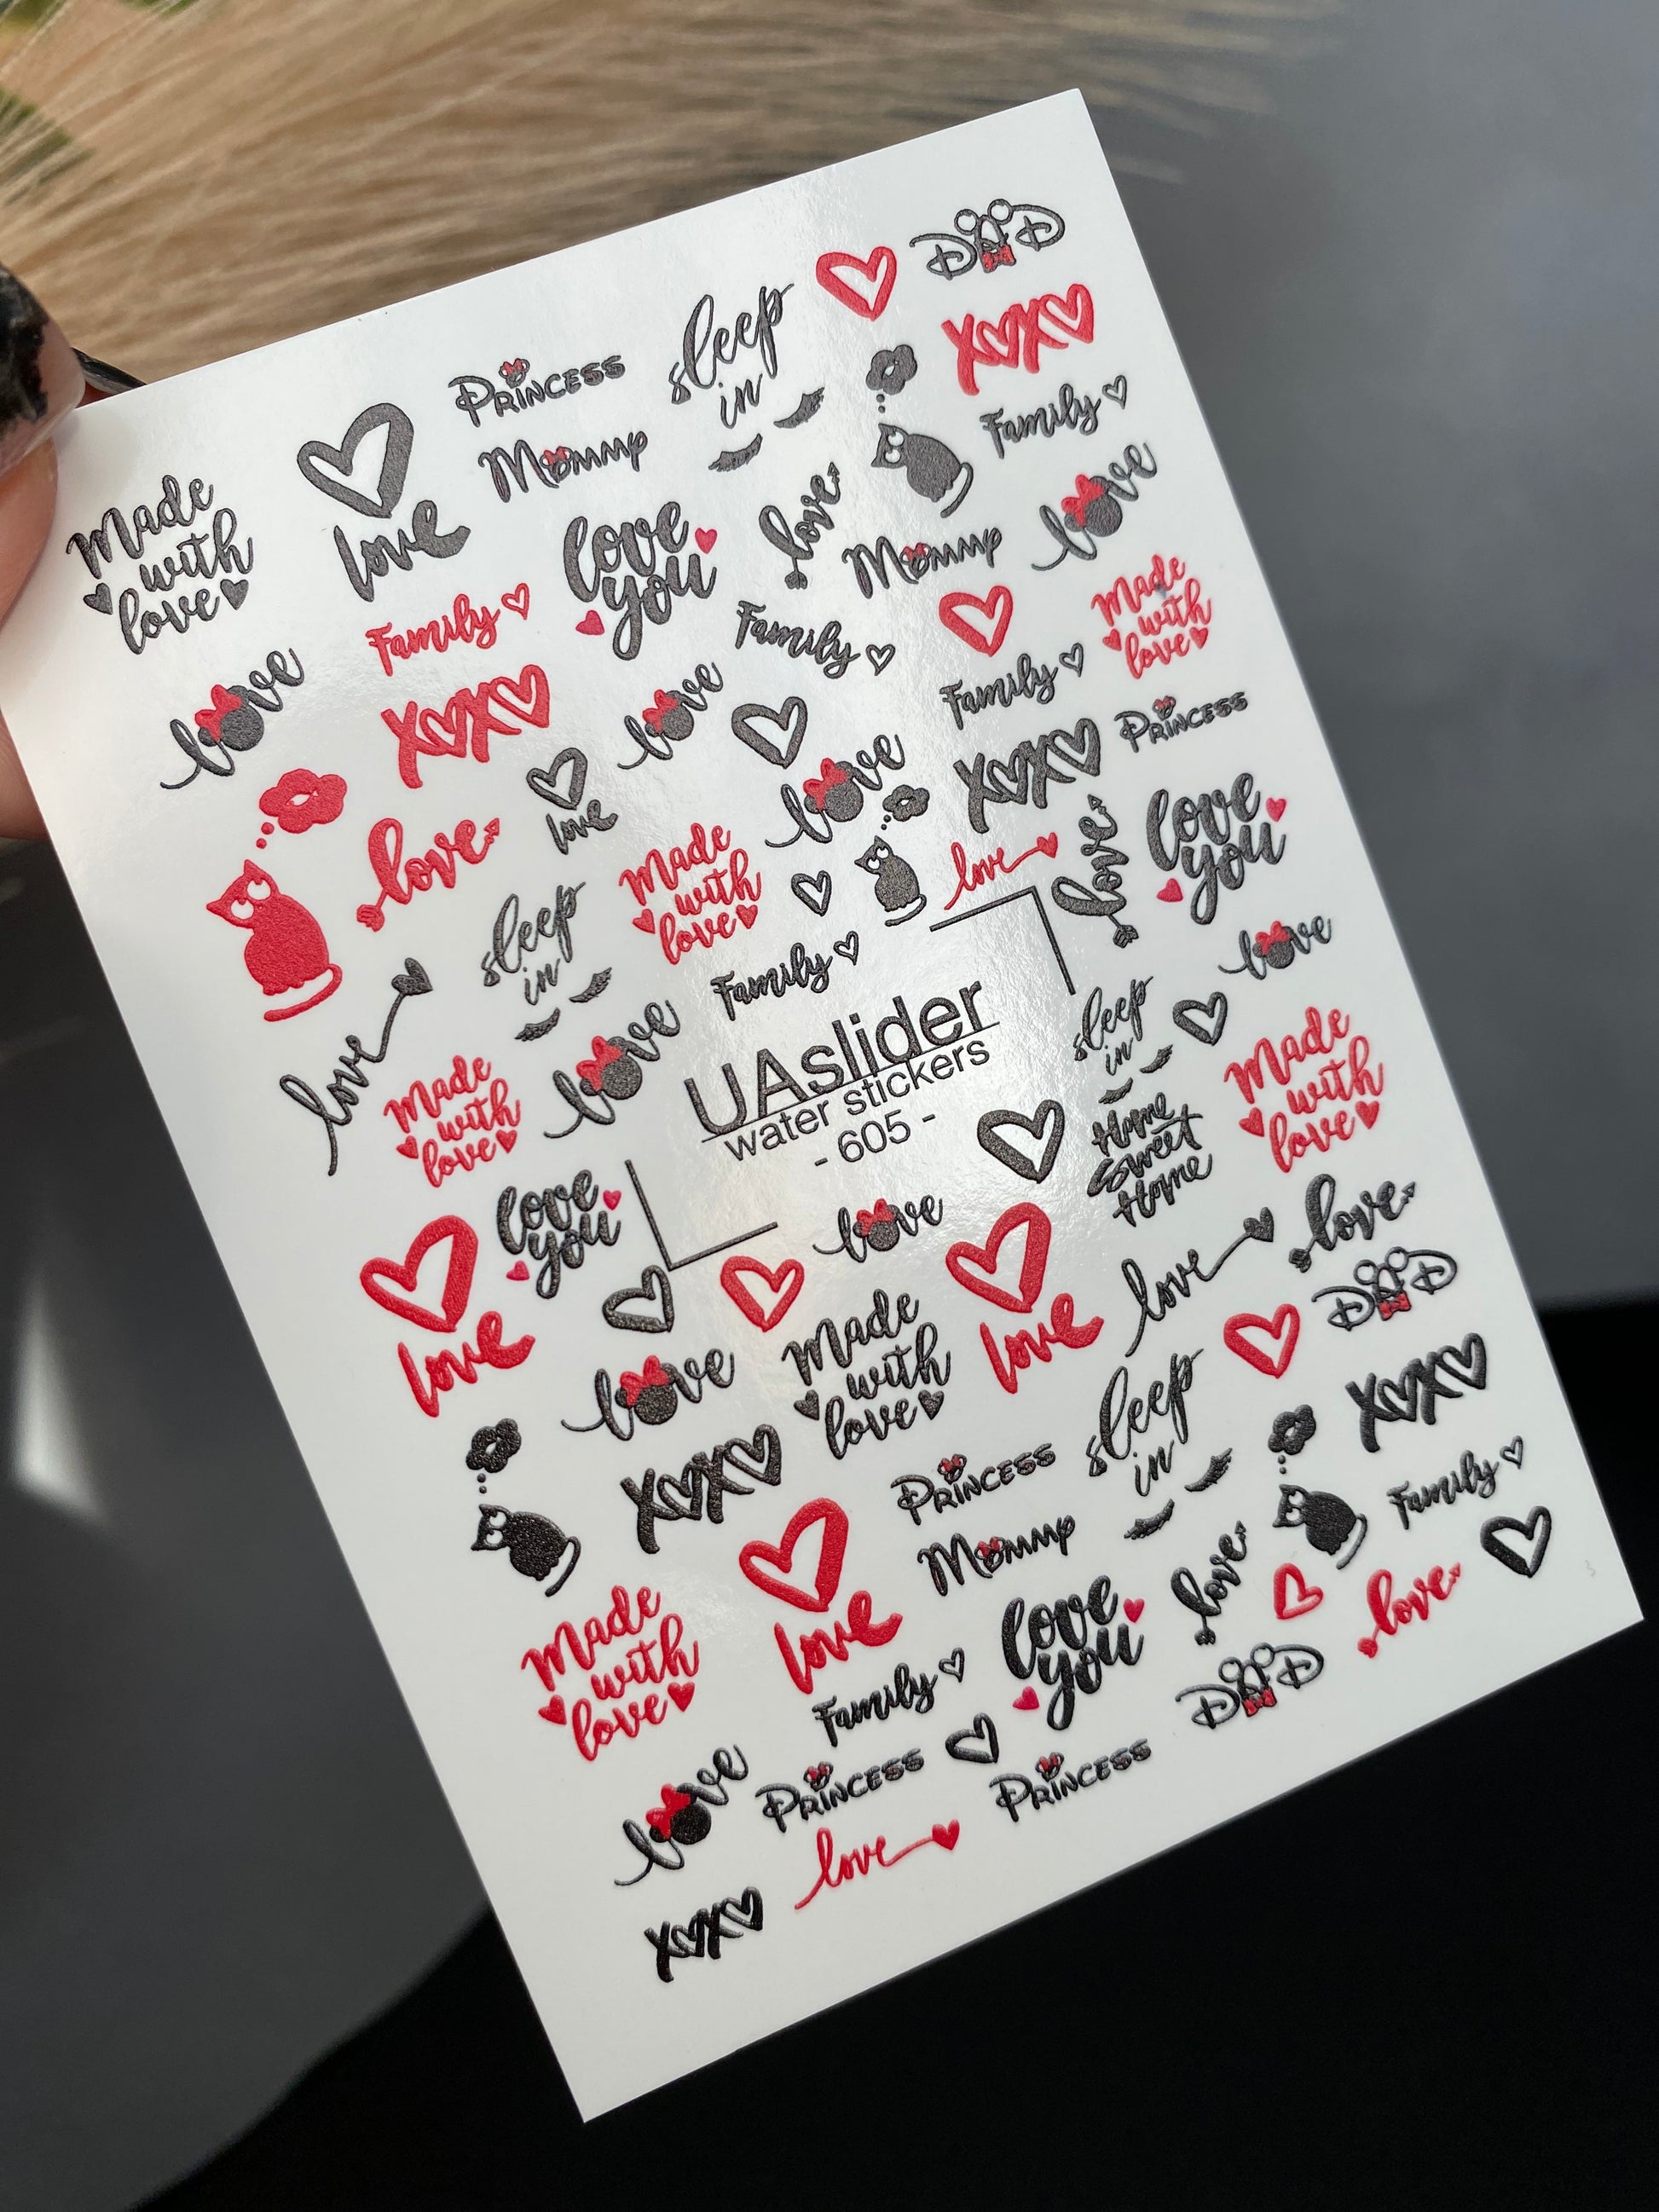 DAD
sleep
in
PRINCESS
XOXO
Mommy
Family
love
Made
with
love
love
you
love
Mommy
love
Family
Family
Made
with
love
love
XOXO
love
Family
PRINCESS
love
love
XOXO
love
love
Made
with
love
love
love
love
you
sleep
in
Family
love
love
sleep
in
UAslider
water stickers
- 605 -
Made
with
love
love
Made
with
love
Home
Sweet
Home
love
you
love
love
love
DAD
love
Made
with
love
love
love
sleep
in
XOXO
XOXO
PRINCESS
Family
Mommy
love
love
Made
with
love
love
love
you
Family
DAD
love
PRINCESS
PRINCESS
love
XOXO